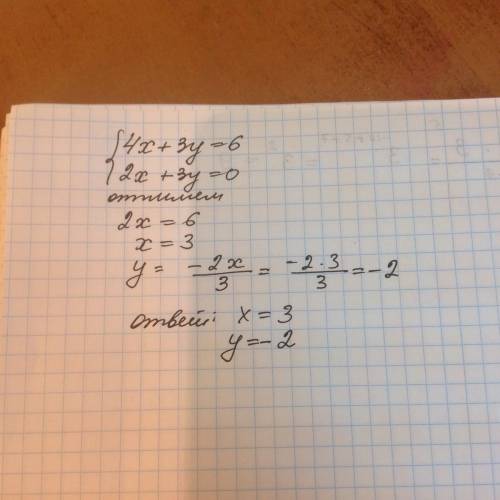 {4x+3y=6
2x+3y=0
отнимем
2x=6
x=3
y= -2x/3 = -2·3/3 =-2
ответ: x=3
y=-2